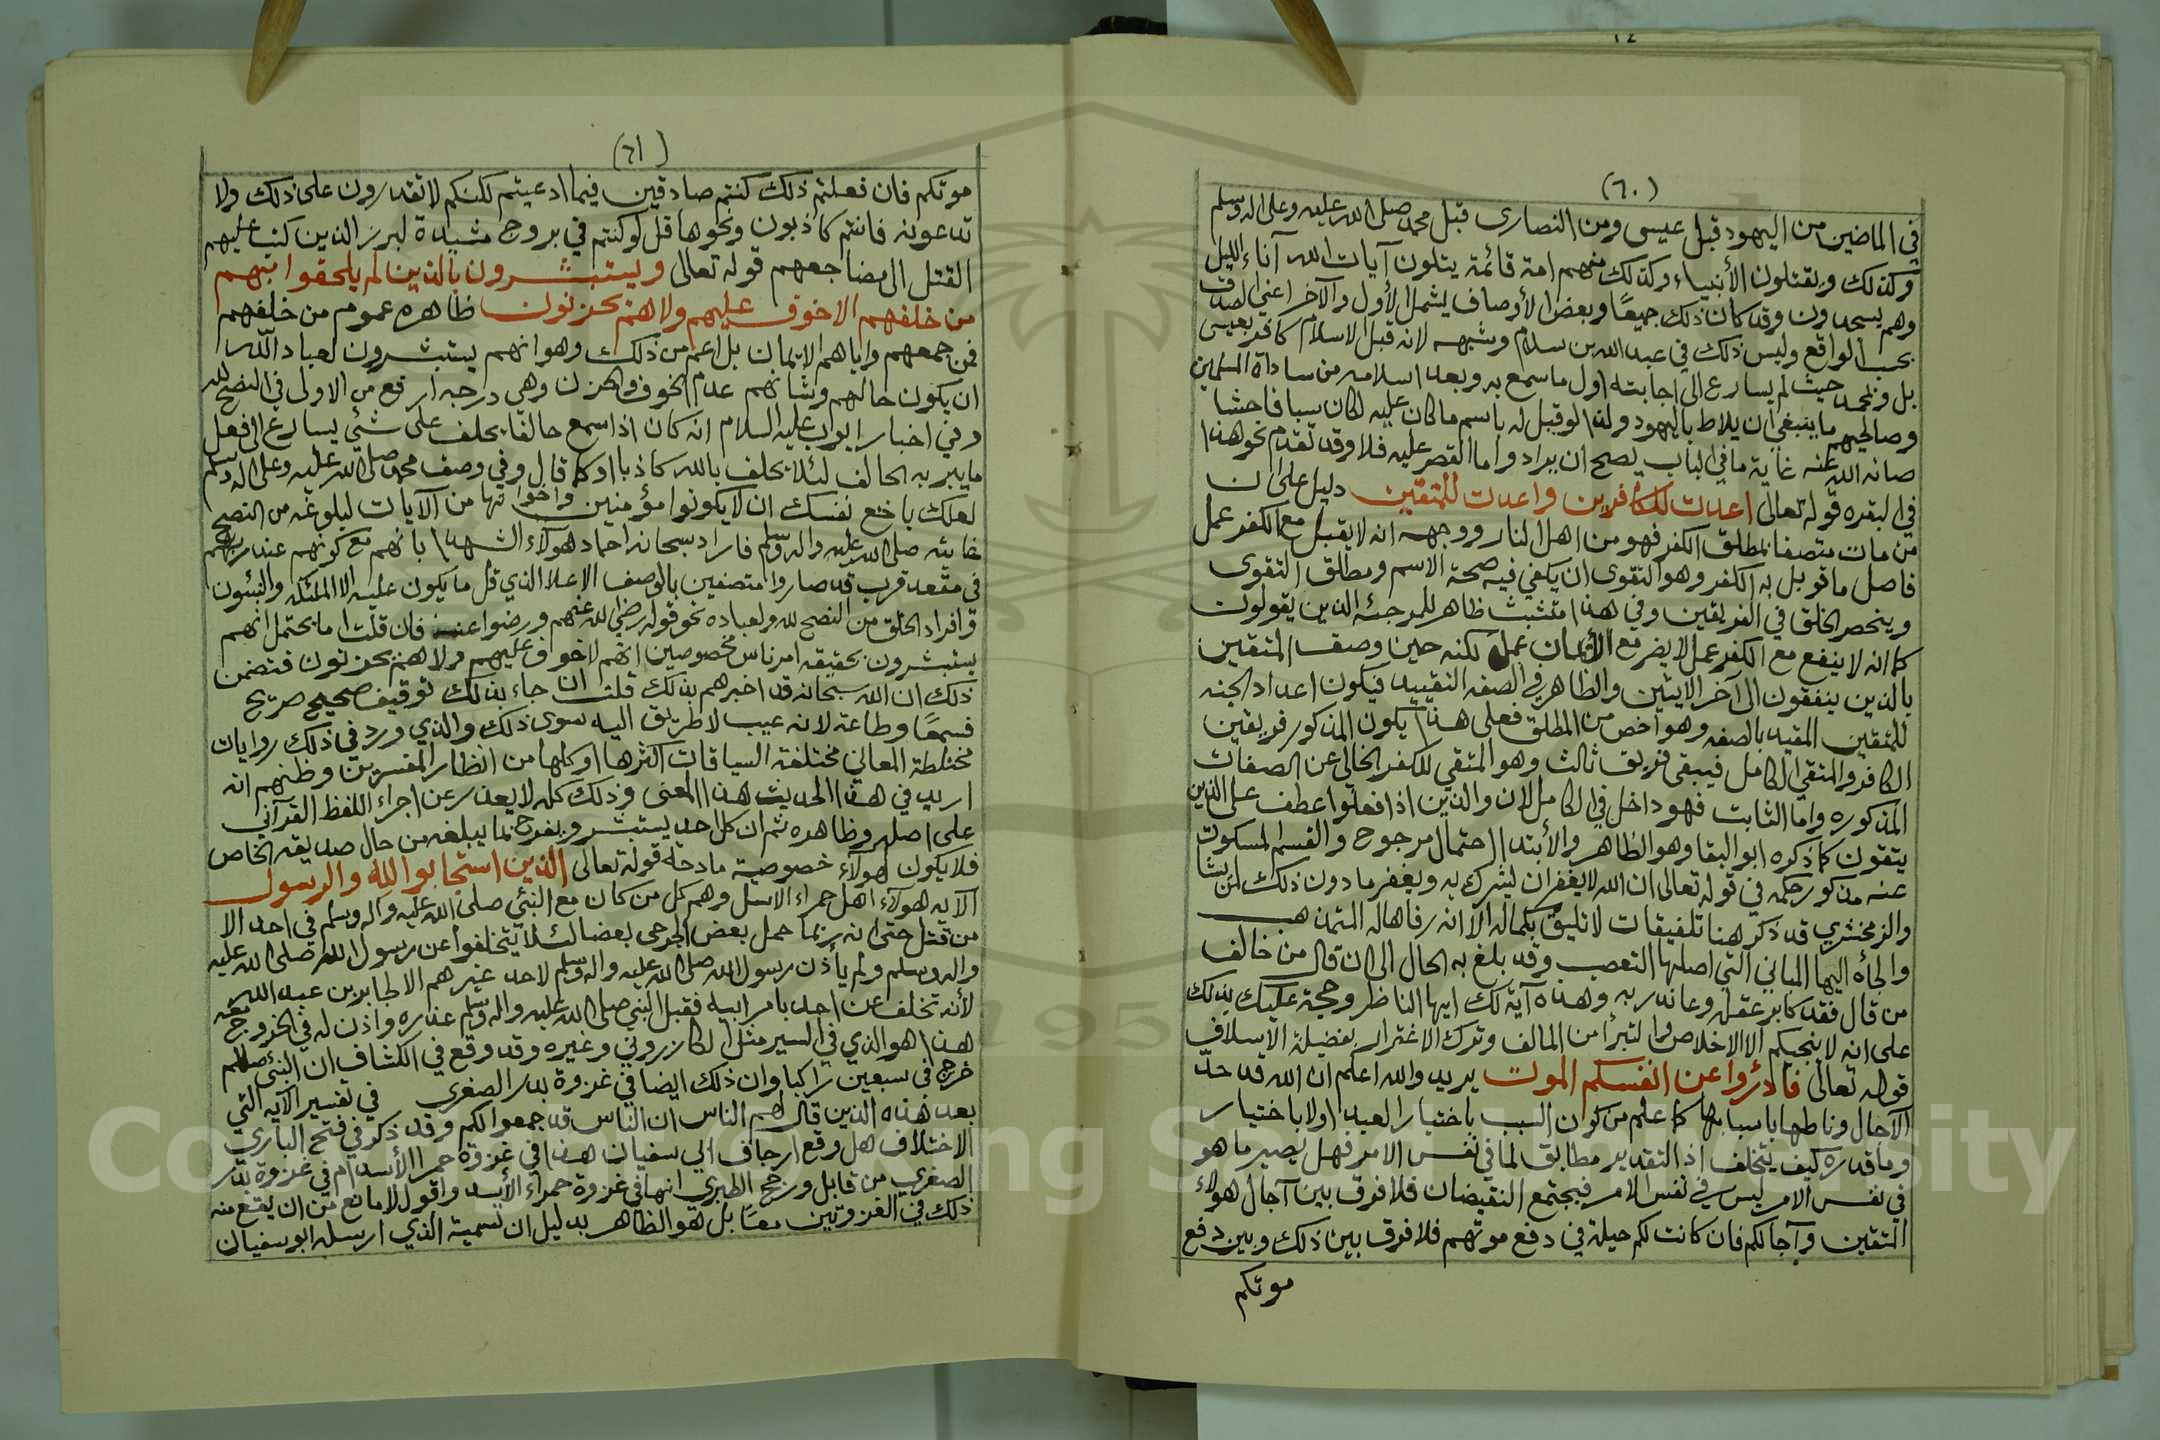 (٦٠)
في الماضين من اليهود قبل عيسى ومن النصارى قبل محمد صلى الله عليه وعلى اله وسلم
وكذلك ويقتلون الأنبياء وكذلك منهم امة قائمة يتلون آيات الله آناء الليل
وهم يسجدون وقد كان ذلك جميعًا وبعض الأوصاف يشمل الأول والآخر اعني الصدق
بحسب الواقع وليس ذلك في عبد الله بن سلام وشبهه لانه قبل الاسلام كافر بعيسى
بل وبمحمد حيث لم يسارع الى اجابته اول ما سمع به وبعد اسلامه من سادات المسلمين
وصالحيهم ما ينبغي أن يلاط باليهود ولذا لو قيل له باسم ما كان عليه لكان سبا فاحشا
صانه الله عنه غاية ما في الباب يصح ان يراد واما القصر عليه فلا وقد تقدم نحو هذا
في البقره قوله تعالى اعدت للكافرين واعدت للمتقين دليل على ان
من مات متصفا بمطلق الكفر فهو من اهل النار ووجهه انه لا يقبل مع الكفر عمل
فاصل ما قوبل به الكفر وهو التقوى ان يكفي فيه صحة الاسم ومطلق التقوى
وينحصر الخلق في الفريقين وفي هذا متشبث ظاهر للمرجئه الذين يقولون
كما انه لا ينفع مع الكفر عمل لا يضر مع الأيمان عمل لكنه حين وصف المتقين
بالذين ينفقون الى آخر الايتين والظاهر في الصفه التقييد فيكون اعداد الجنه
للمتقين المقيد بالصفه وهو أخص من المطلق فعلى هذا يكون المذكور فريقين
الكافر والمتقي الكامل فيبقى فريق ثالث وهو المتقي للكفر الخالي عن الصفات
المذكوره واما الثابت فهو داخل في الكامل لان والذين اذا فعلوا عطف على الذين
يتقون كما ذكره ابو البقا وهو الظاهر والأبتدا احتمال مرجوح والقسم المسكوت
عنه مذكور حكمه في قوله تعالى ان الله لا يغفر ان يشرك به ويغفر ما دون ذلك لمن يشا
والزمخشري قد ذكر هنا تلفيقات لا تليق بكماله الا انه رفاها له التمذهب
والجأه اليها المباني التي اصلها التعصب وقد بلغ به الحال الى ان قال من خالف
من قال فقد كابر عقله وعاند ربه وهذه آية لك ايها الناظر وحجة عليك بذلك
على انه لا ينجيكم الا الاخلاص والتبرأ من المالف وترك الاغترار بفضيلة الاسلاف
قوله تعالى فادرؤا عن انفسكم الموت يريد والله اعلم ان الله قد حدّ
الآجال وناطها باسبابها كما علم من كون السبب باختيار العبد أو لا باختيار
وما قدره كيف يتخلف اذ التقدير مطابق لما في نفس الامر فهل يصير ما هو
في نفس الامر ليس في نفس الامر فيجتمع النقيضان فلا فرق بين آجال هولاء
المتقين وآجالكم فان كانت لكم حيلة في دفع موتهم فلا فرق بين ذلك وبين دفع
موتكم
(٦١)
موتكم فان فعلتم ذلك كنتم صادقين فيما ادعيتم لكنكم لا تقدرون على ذلك ولا
تدعونه فانتم كاذبون ونحوها قل لو كنتم في بروج مشيدة لبرز الذين كتب عليهم
القتل الى مضاجعهم قوله تعالى ويستبشرون بالذين لم يلحقوا بهم
من خلفهم الا خوف عليهم ولا هم يحزنون ظاهره عموم من خلفهم
فمن جمعهم واياهم الايمان بل اعم من ذلك وهو انهم يستبشرون لعباد الله
ان يكون حالهم وشانهم عدم الخوف والحزن وهي درجه ارفع من الاولى في النصح لله
وفي اخبار ايوب عليه السلام انه كان اذا سمع حالفا يحلف على شئ يسارع الى فعل
ما يبر به الحالف لئلا يحلف بالله كاذبا او كما قال وفي وصف محمد صلى الله عليه وعلى اله وسلم
لعلك باخع نفسك ان لا يكونوا مؤمنين واخواتها من الآيات لبلوغه من النصح
غايته صلى الله عليه واله وسلم فاراد سبحانه احماد هولآء الشهدا بانهم مع كونهم عند ربهم
في مقعد قرب قد صاروا متصفين بالوصف الاعلا الذي قل ما يكون عليه الا الملئكه والنبئون
وافراد الخلق من النصح لله ولعباده نحو قوله رضي الله عنهم ورضوا عنه فان قلت اما يحتمل انهم
يستبشرون بحقيقه امر ناس مخصوصين انهم لا خوف عليهم ولا هم يحزنون فتضمن
ذلك ان الله سبحانه قد اخبرهم بذلك قلت ان جاء بذلك توقيف صحيح صريح
فسمعًا وطاعة لانه غيب لا طريق اليه سوى ذلك والذي ورد في ذلك روايات
مختلطة المعاني مختلفة السياقات اكثرها او كلها من انظار المفسرين وظنهم انه
اريد في هذا الحديث هذا المعنى وذلك كله لا يعذر عن اجراء اللفظ القرآني
على اصله وظاهره ثم ان كل احد يستبشر ويفرح بما يبلغه من حال صديقه الخاص
فلا يكون لهولآء خصوصية مادحة قوله تعالى الذين استجابوا لله والرسول
الآيه هولآء اهل حمراء الاسد وهم كل من كان مع النبئ صلى الله عليه واله وسلم في احد الا
من قتل حتى انه ربما حمل بعض الجرحى بعضا لئلا يتخلفوا عن رسول الله صلى الله عليه
واله وسلم ولم يأذن رسول الله صلى الله عليه واله وسلم لاحد غيرهم الا لجابر بن عبد الله
لأنه تخلف عن احد بامر ابيه فقبل النبي صلى الله عليه واله وسلم عذره واذن له في الخروج معه
هذا هو الذي في السير مثل الكازروني وغيره وقد وقع في الكشاف ان النبئ صللم
خرج في سبعين راكبا وان ذلك ايضا في غزوة بدر الصغرى في تفسير الآيه التي
بعد هذه الذين قال لهم الناس ان الناس قد جمعوا لكم وقد ذكر في فتح الباري
الاختلاف هل وقع ارجاف ابي سفيان هذا في غزوة حمرا الأسد ام في غزوة بدر
الصغرى من قابل ورجح الطبري انها في غزوة حمراء الأسد واقول لا مانع من ان يقع منه
ذلك في الغزوتين معًا بل هو الظاهر بدليل ان تسمية الذي ارسله ابو سفيان